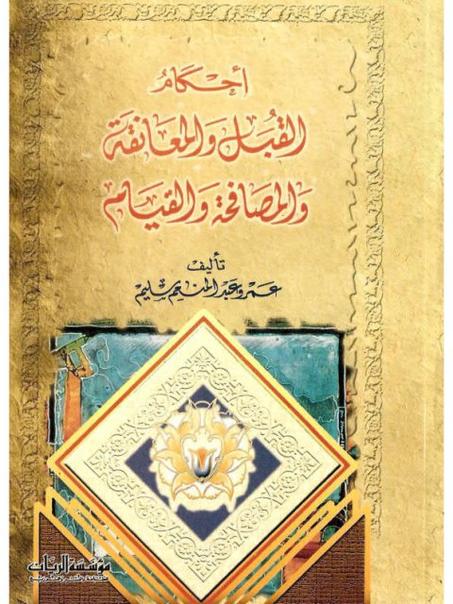 أحكام
القبل والمعانقة
والمصافحة والقيام
تأليف
عمرو عبد المنعم سليم
مؤسسة الريان